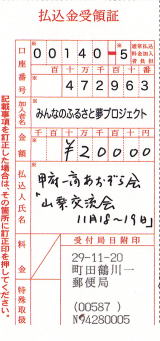 払込金受領証
口座番号
00140-5
通常払込
料金加入
者負担
百 十 万 千 百 十 番
472963
加入者名
みんなのふるさと夢プロジェクト
金額
千 百 十 万 千 百 十 円
¥20000
払込人氏名
甲府一高あおぞら会
「山梨交流会
11月18~19日」
受付局日附印
料金
29-11-20
町田鶴川一
郵便局
特殊取扱
(00587)
N04280005
記載事項を訂正した場合は、その箇所に訂正印を押してください。